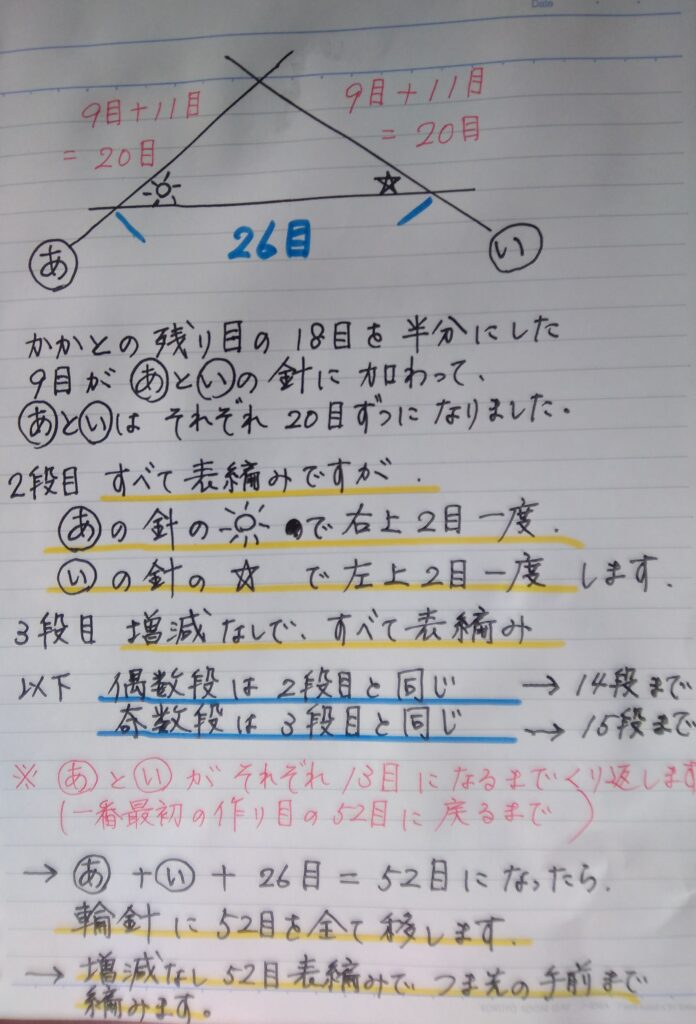 Date
9目+11目
=20目
9目+11目
=20目
26目
あ
い
かかとの残り目の18目を半分にした
9目があといの針に加わって、
あといはそれぞれ20目ずつになりました。
2段目 すべて表編みですが、
あの針の☼ で右上2目一度、
いの針の☆ で左上2目一度 します。
3段目 増減なしで、すべて表編み
以下 偶数段は2段目と同じ → 14段まで
奇数段は3段目と同じ → 15段まで
※ あといがそれぞれ13目になるまでくり返します
(一番最初の作り目の52目に戻るまで)
→ あ+い+26目=52目になったら、
輪針に52目を全て移します。
→ 増減なし52目表編みでつま先の手前まで
編みます。